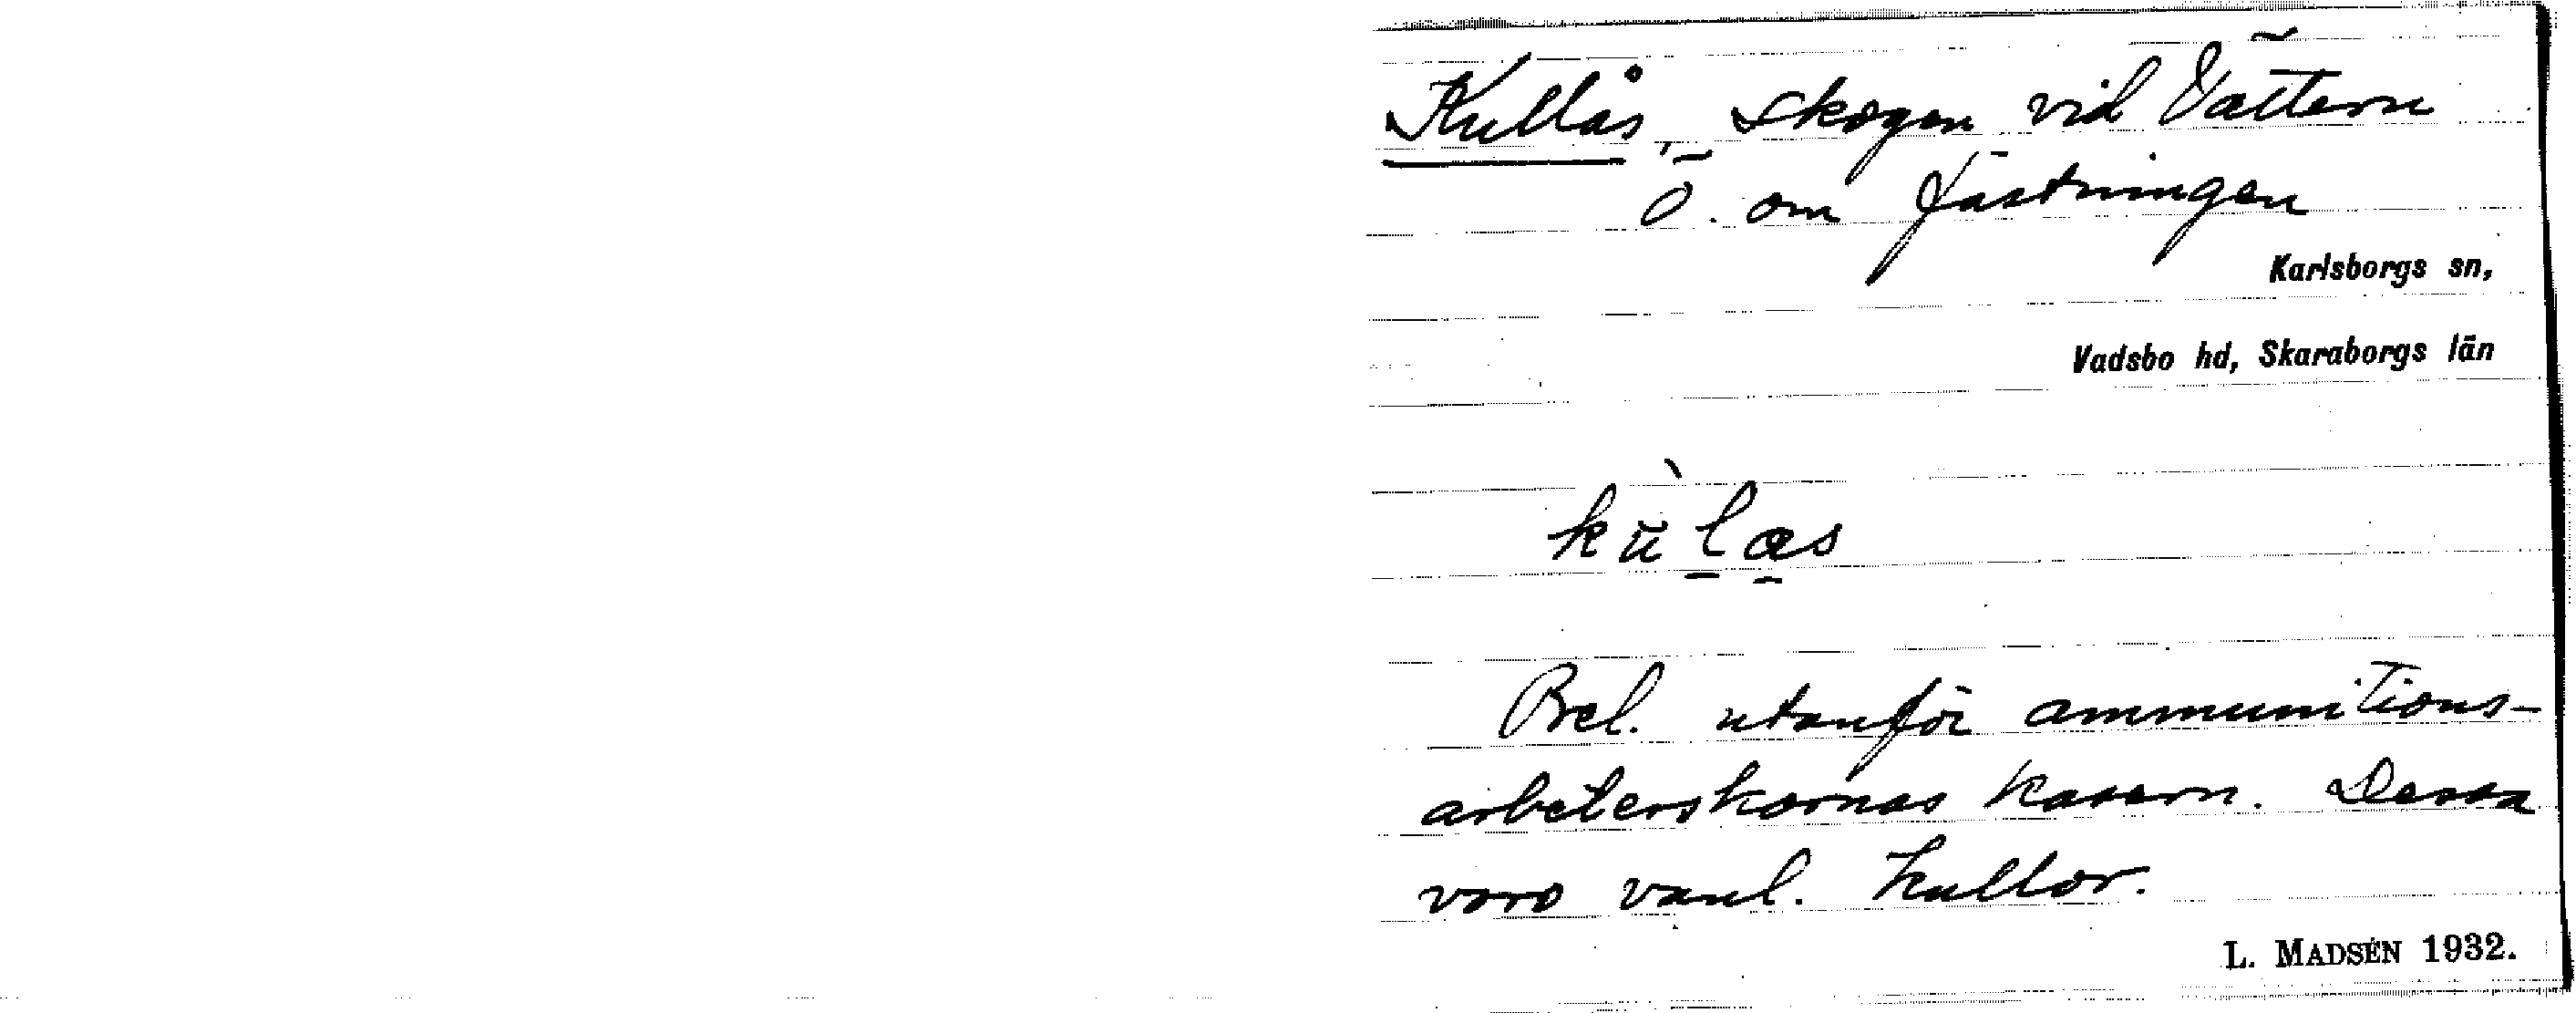 Kullås, skogen vid Vättern
Ö. om fästningen
Karlsborgs sn,
Vadsbo hd, Skaraborgs län
Bel. utanför ammunitions-
arbeterskornas kasern. Dessa
voro vanl. kullor.
L. MADSÉN 1932.